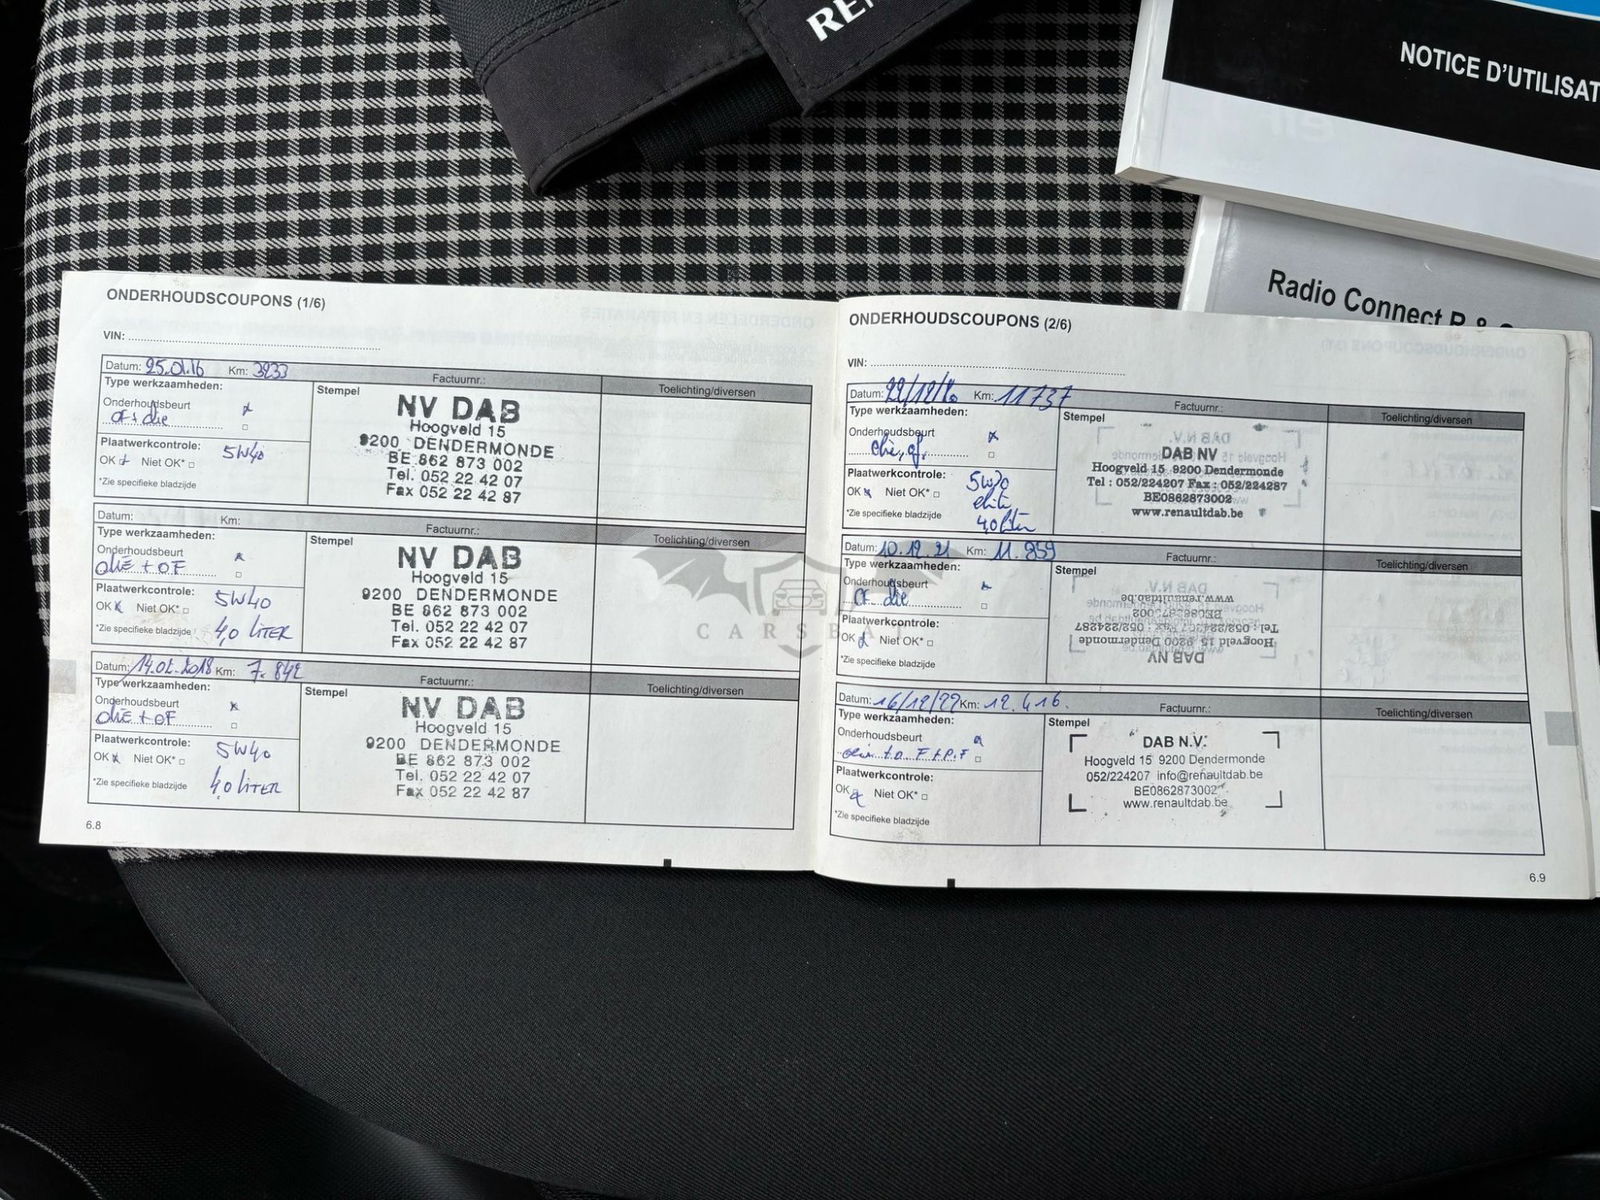 NOTICE D'UTILISAT
Radio Connect R &
ONDERHOUDSCOUPONS (1/6)
VIN:
Datum: 25.01.16 Km: 3233 Factuurnr.: Toelichting/diversen
Type werkzaamheden:
Onderhoudsbeurt
OF + olie
Plaatwerkcontrole:
OK Niet OK*
*Zie specifieke bladzijde
5W40
Stempel
NV DAB
Hoogveld 15
9200 DENDERMONDE
BE 862 873 002
Tel. 052 22 42 07
Fax 052 22 42 87
Datum: Km: Factuurnr.: Toelichting/diversen
Type werkzaamheden:
Onderhoudsbeurt
OLIE + OF
Plaatwerkcontrole:
OK Niet OK*
*Zie specifieke bladzijde
5W40
4,0 LITER
Stempel
NV DAB
Hoogveld 15
9200 DENDERMONDE
BE 862 873 002
Tel. 052 22 42 07
Fax 052 22 42 87
Datum: 14.02.2018 Km: 7.842 Factuurnr.: Toelichting/diversen
Type werkzaamheden:
Onderhoudsbeurt
OLIE + OF
Plaatwerkcontrole:
OK Niet OK*
*Zie specifieke bladzijde
5W40
4,0 LITER
Stempel
NV DAB
Hoogveld 15
9200 DENDERMONDE
BE 862 873 002
Tel. 052 22 42 07
Fax 052 22 42 87
6.8
ONDERHOUDSCOUPONS (2/6)
VIN:
Datum: 22/12/20 Km: 11737 Factuurnr.: Toelichting/diversen
Type werkzaamheden:
Onderhoudsbeurt
olie, of,
Plaatwerkcontrole:
OK Niet OK*
*Zie specifieke bladzijde
4,0 liter
Stempel
DAB NV
Hoogveld 15 9200 Dendermonde
Tel : 052/224207 Fax : 052/224287
BE0862873002
www.renaultdab.be
Datum: 10.12.21 Km: 11.959 Factuurnr.: Toelichting/diversen
Type werkzaamheden:
Onderhoudsbeurt
OF olie
Plaatwerkcontrole:
OK Niet OK*
*Zie specifieke bladzijde
Stempel
DAB NV
Hoogveld 15 9200 Dendermonde
Tel : 052/224207 Fax : 052/224287
BE0862873002
www.renaultdab.be
Datum: 16/12/22 Km: 12.416. Factuurnr.: Toelichting/diversen
Type werkzaamheden:
Onderhoudsbeurt
Plaatwerkcontrole:
OK Niet OK*
*Zie specifieke bladzijde
Stempel
DAB N.V.
Hoogveld 15 9200 Dendermonde
052/224207 info@renaultdab.be
BE0862873002
www.renaultdab.be
6.9